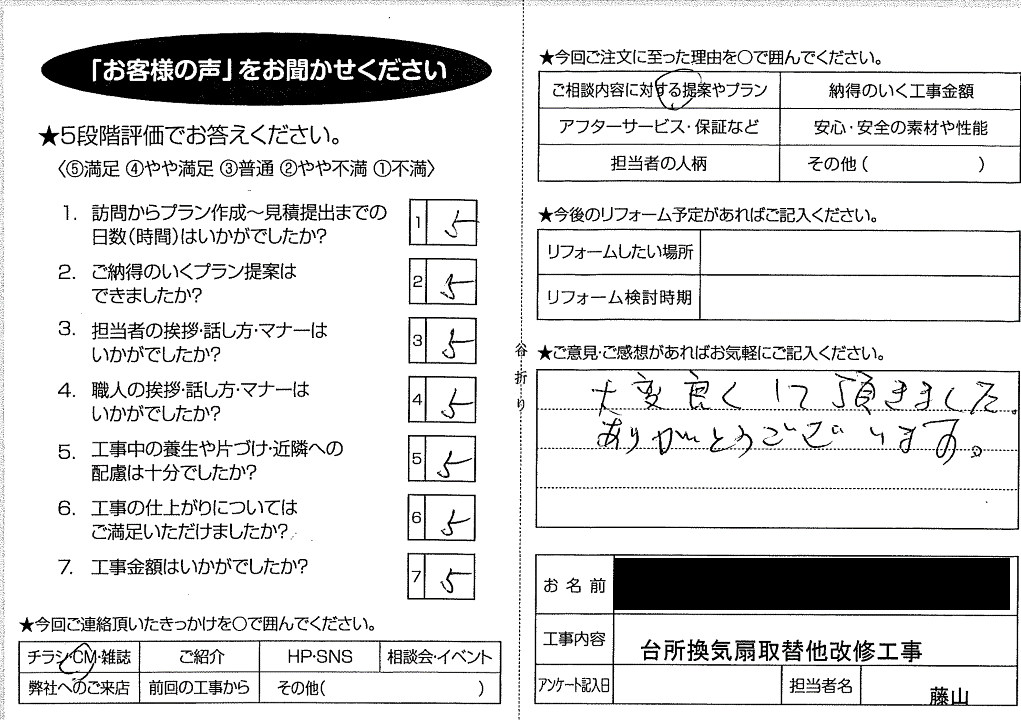 「お客様の声」をお聞かせください
★5段階評価でお答えください。
〈⑤満足 ④やや満足 ③普通 ②やや不満 ①不満〉
1. 訪問からプラン作成～見積提出までの
日数(時間)はいかがでしたか?
1 5
2. ご納得のいくプラン提案は
できましたか?
2 5
3. 担当者の挨拶・話し方・マナーは
いかがでしたか?
3 5
4. 職人の挨拶・話し方・マナーは
いかがでしたか?
4 5
5. 工事中の養生や片づけ・近隣への
配慮は十分でしたか?
5 5
6. 工事の仕上がりについては
ご満足いただけましたか?
6 5
7. 工事金額はいかがでしたか?
7 5
★今回ご連絡頂いたきっかけを○で囲んでください。
チラシ・CM・雑誌 ご紹介 HP・SNS 相談会・イベント
弊社へのご来店 前回の工事から その他( )
谷折り
★今回ご注文に至った理由を○で囲んでください。
ご相談内容に対する提案やプラン 納得のいく工事金額
アフターサービス・保証など 安心・安全の素材や性能
担当者の人柄 その他( )
★今後のリフォーム予定があればご記入ください。
リフォームしたい場所
リフォーム検討時期
★ご意見・ご感想があればお気軽にご記入ください。
大変良くして頂きました。
ありがとうございます。
お名前
工事内容 台所換気扇取替他改修工事
アンケート記入日 担当者名 藤山